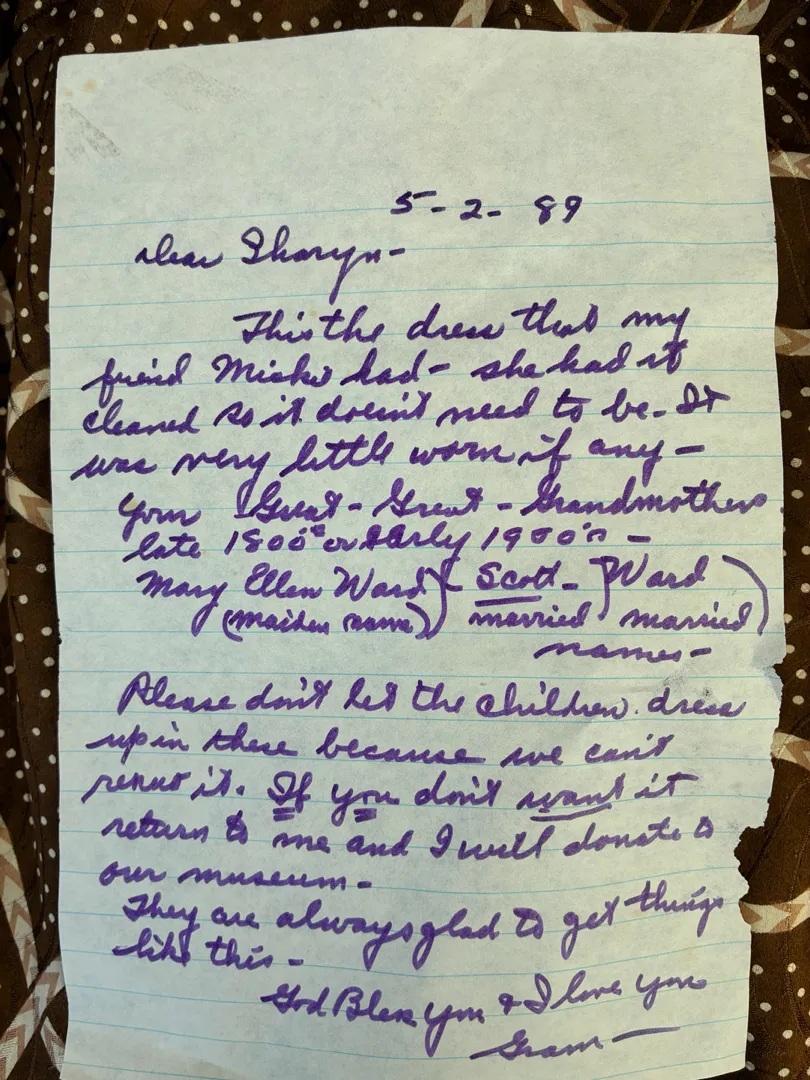 5-2-89
Dear Sharyn-
This the dress that my
friend Micki had- she had it
cleaned so it doesn't need to be. It
was very little worn if any-
Your Great-Great-Grandmothers.
late 1800's or Early 1900's-
Mary Ellen Ward } - Scott- } Ward )
(maiden name) ) married married
names-
Please don't let the children dress
up in these because we can't
it. If you don't want it
return to me and I will donate to
our museum-
They are always glad to get things
like this-
God Bless you & I love you
Gram-